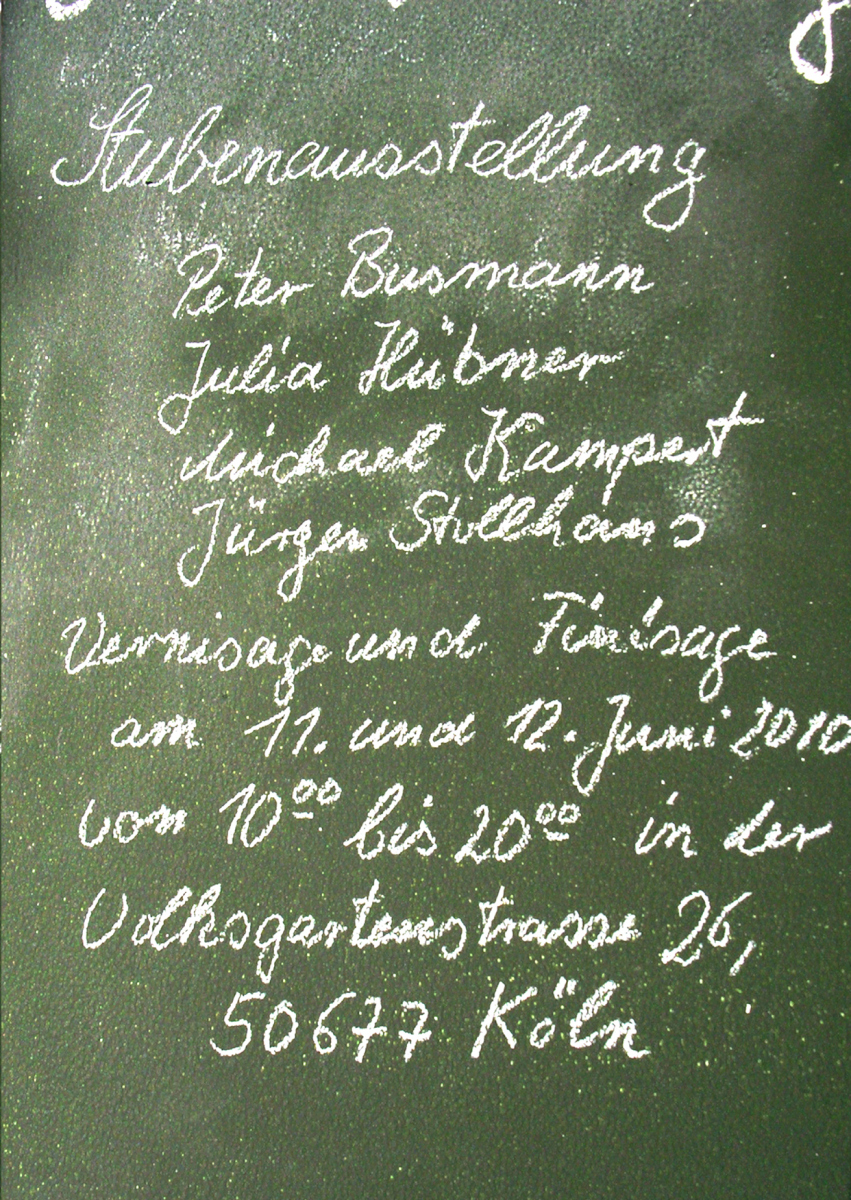 Stubenausstellung
Peter Busmann
Julia Hübner
Michael Kampert
Jürgen Stollhans
Vernisage und Finisage
am 11. und 12. Juni 2010
von 10⁰⁰ bis 20⁰⁰ in der
Volksgartenstrasse 26,
50677 Köln